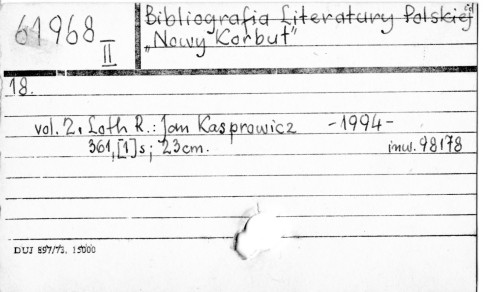 61968
II
Bibliografia Literatury Polskiej
"Nowy Korbut"
cd
18.
vol. 2. Loth R.: Jan Kasprowicz -1994-
361,[1]s; 23cm. inw. 98178
DUJ 897/73. 15000